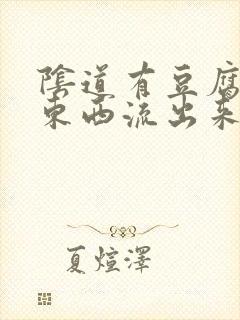 陰道有豆腐
東西流出來
夏煊澤